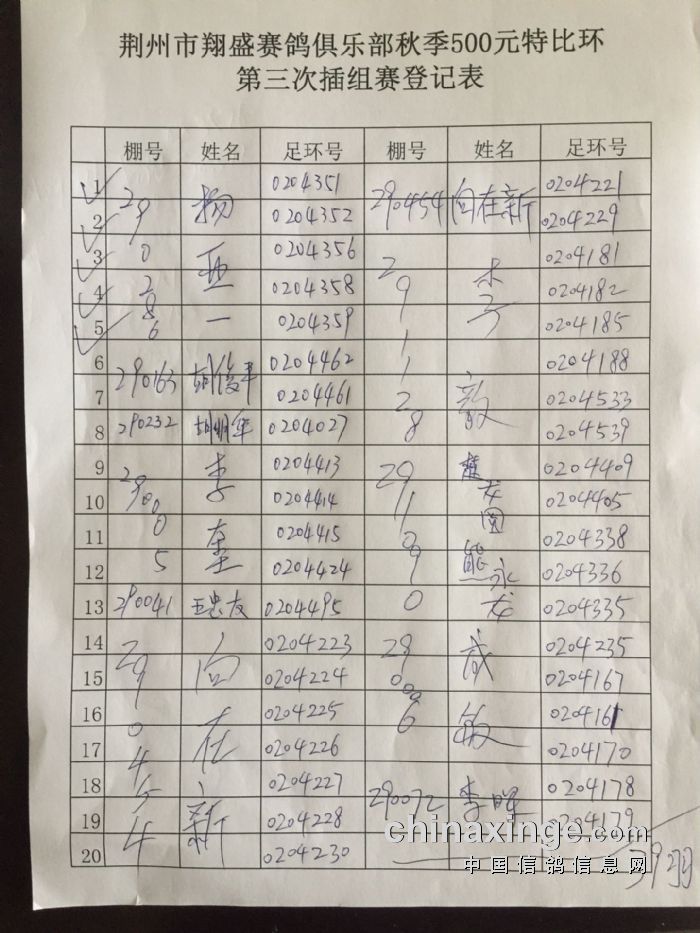 荆州市翔盛赛鸽俱乐部秋季500元特比环
第三次插组赛登记表
棚号 姓名 足环号 棚号 姓名 足环号
1 0204351 290454 向在新 0204221
2 0204352 0204229
3 0204356 0204181
4 0204358 0204182
5 0204359 0204185
290286 杨亚一
6 0204462 0204188
7 290163 胡俊平 0204461 0204533
8 290232 胡明华 0204027 0204539
9 0204413 0204409
10 0204414 0204405
11 0204415 0204338
12 0204424 熊永龙 0204336
290005 李
13 290041 王忠友 0204495 0204335
14 0204223 0204235
15 0204224 0204167
16 0204225 0204161
17 0204226 0204170
18 0204227 290072 李晖 0204178
19 0204228 0204179
20 0204230
290454 向在新
290006 敏
39羽
chinaxinge.com
中国信鸽信息网